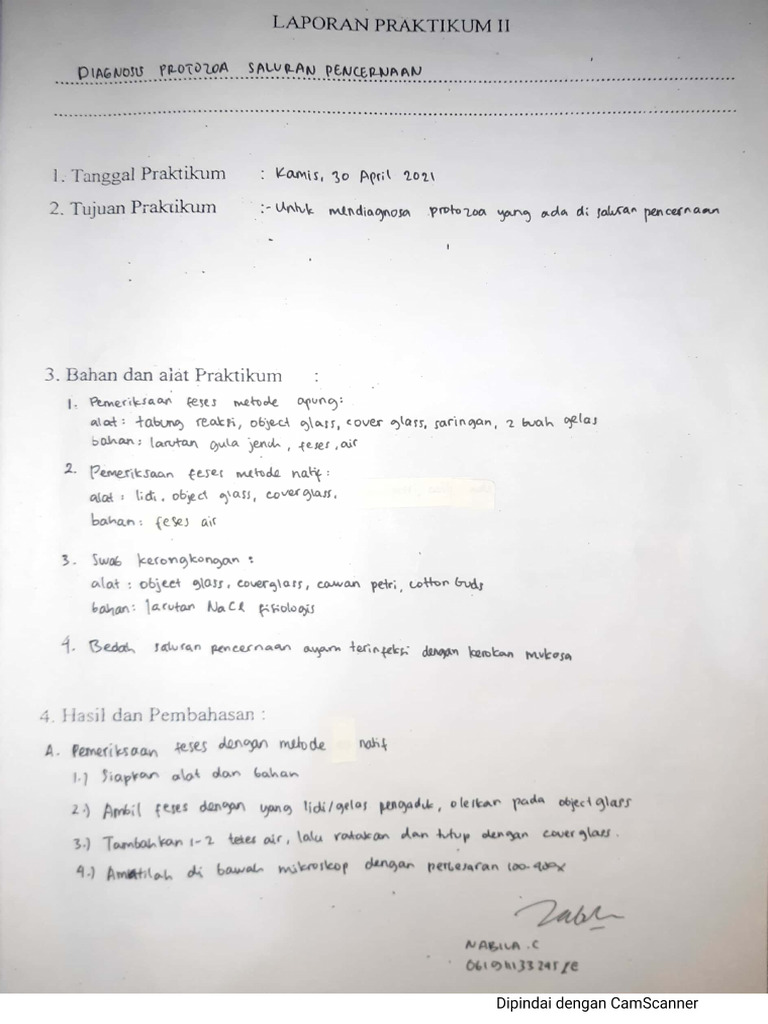 LAPORAN PRAKTIKUM II
DIAGNOSIS PROTOZOA SALURAN PENCERNAAN
1. Tanggal Praktikum : Kamis, 30 April 2021
2. Tujuan Praktikum :- Untuk mendiagnosa protozoa yang ada di saluran pencernaan
3. Bahan dan alat Praktikum :
1. Pemeriksaan feses metode apung:
alat : tabung reaksi, object glass, cover glass, saringan, 2 buah gelas
bahan : larutan gula jenuh, feses, air
2. Pemeriksaan feses metode natif :
alat : lidi, object glass, cover glass.
bahan : feses air
3. Swab kerongkongan :
alat : object glass, coverglass, cawan petri, cotton buds
bahan : larutan NaCl fisiologis
4. Bedah saluran pencernaan ayam terinfeksi dengan kerokan mukosa
4. Hasil dan Pembahasan :
A. Pemeriksaan feses dengan metode natif
1.) Siapkan alat dan bahan
2.) Ambil feses dengan yang lidi/gelas pengaduk, oleskan pada object glass
3.) Tambahkan 1-2 tetes air, lalu ratakan dan tutup dengan cover glass.
4.) Amatilah di bawah mikroskop dengan perbesaran 100-400x
NABILA .C
Dipindai dengan CamScanner